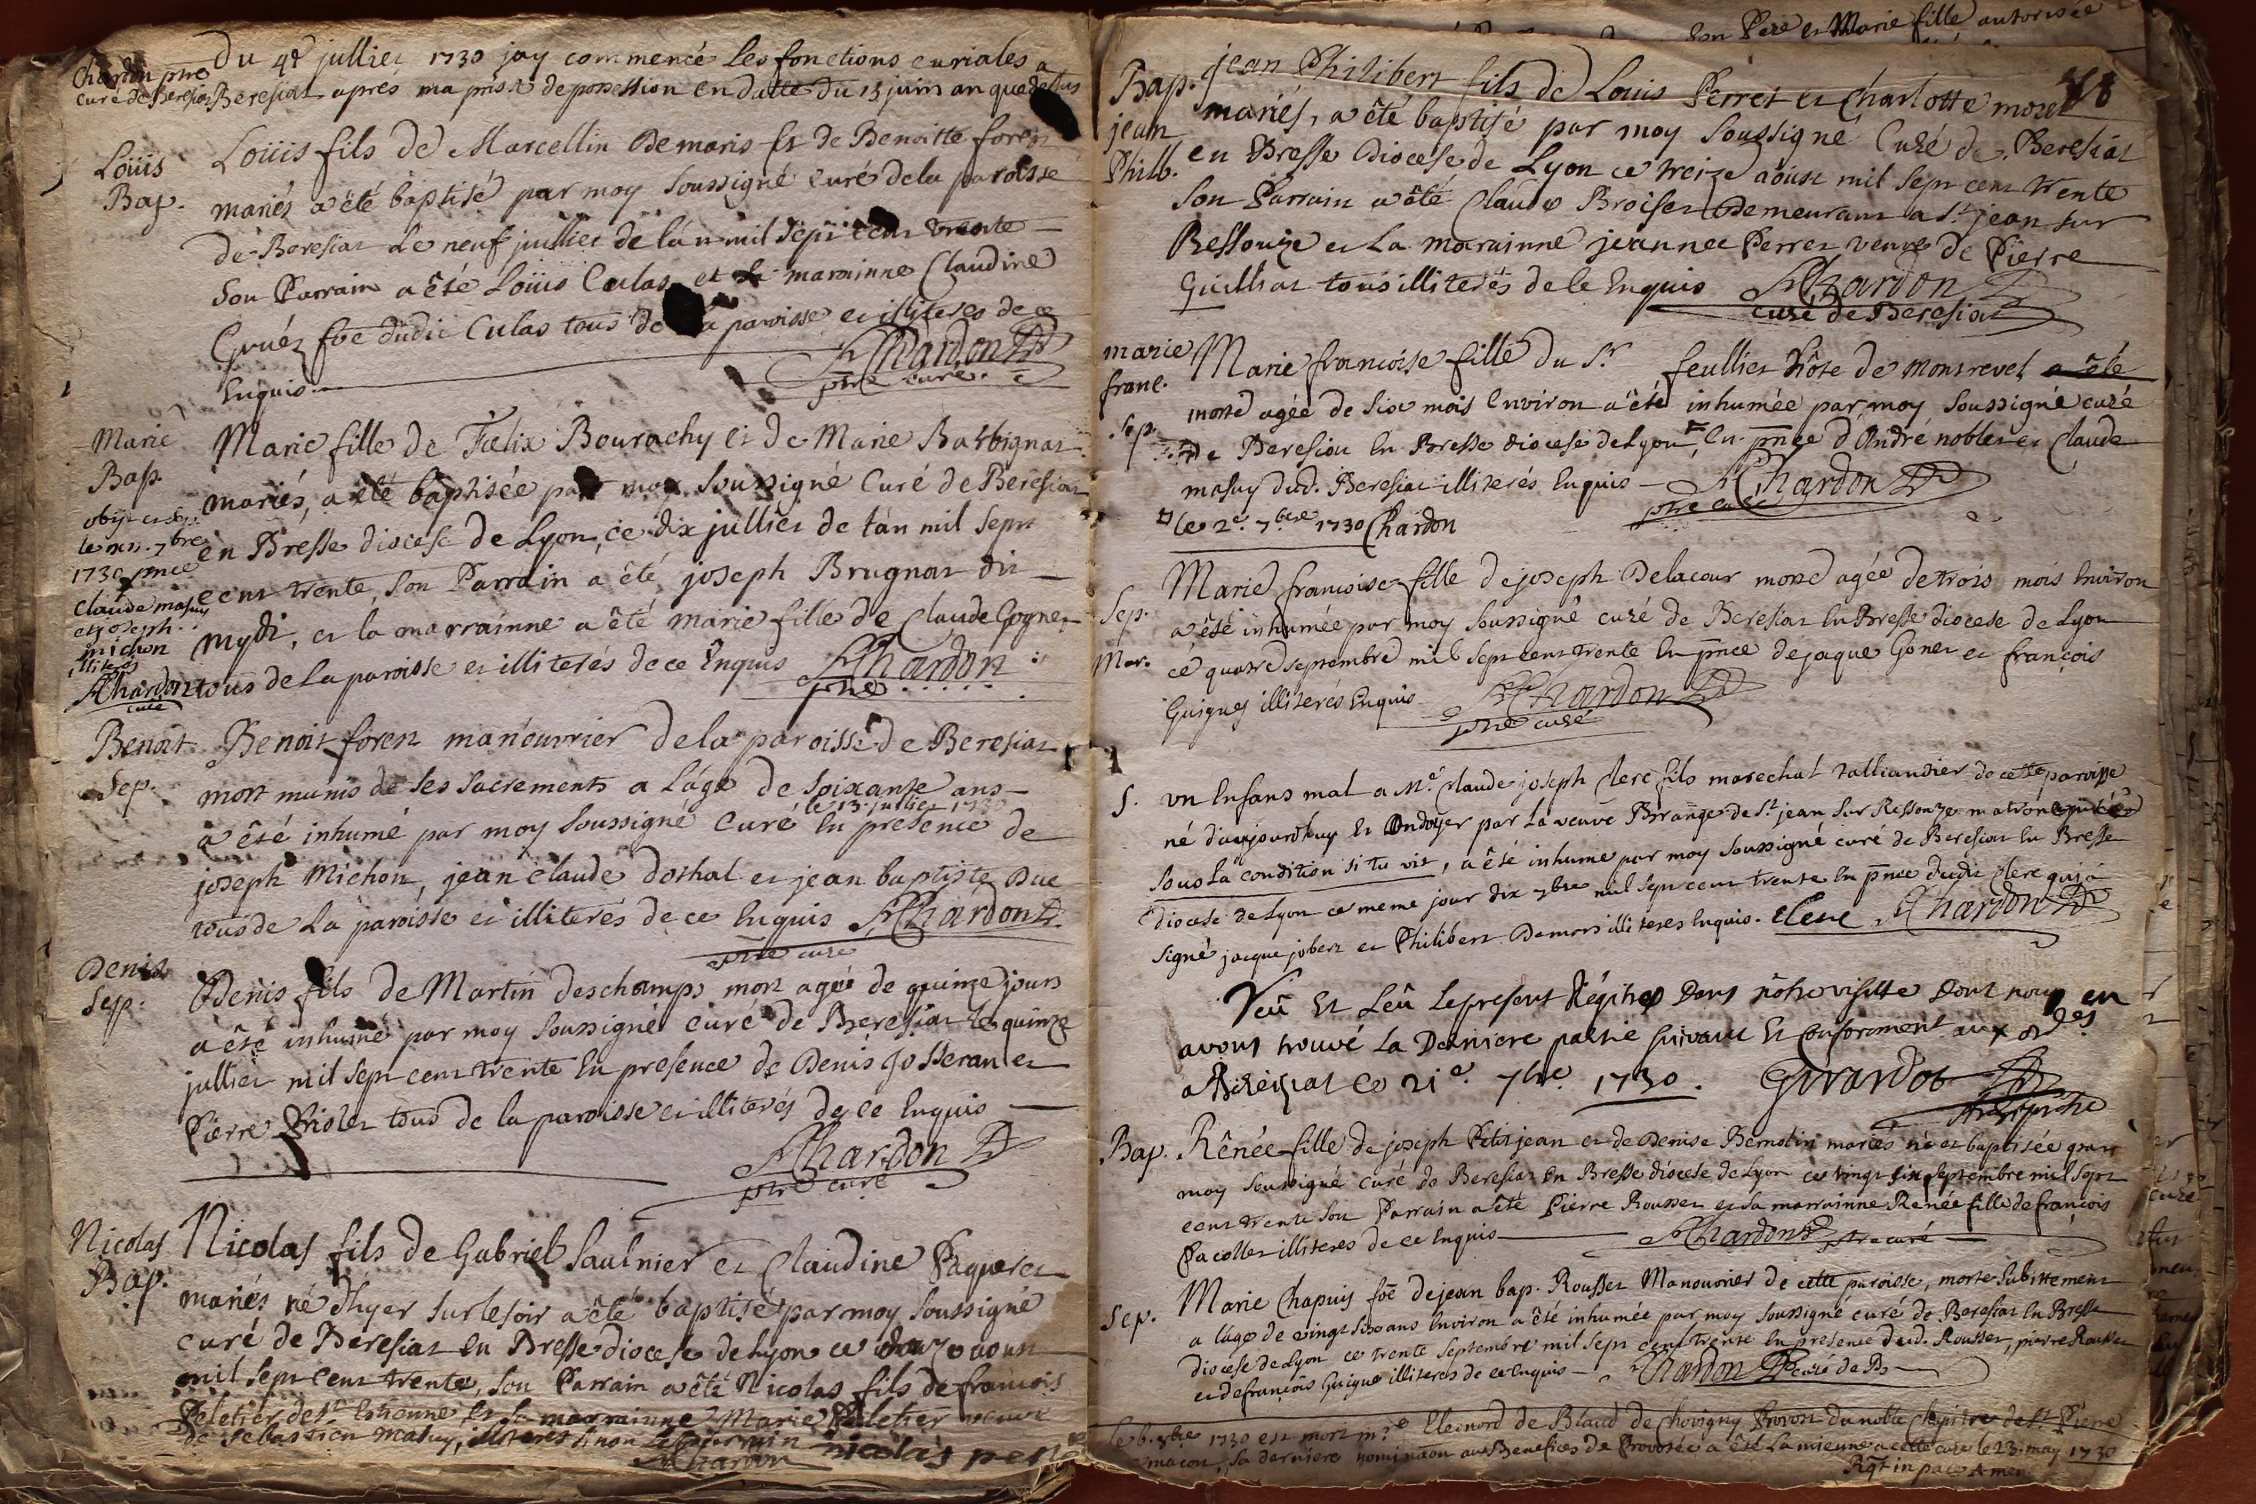 Chardon ptre
curé de Beresiat
Du 4e jullier 1730 jay commencé les fonctions curiales a
Beresiat après ma prise de possession en datte du 15 juin an que dessus
Loüis
Bap.
Loüis fils de Marcellin Demaris et de Benoitte forest
mariés a été baptisé par moy soussigné curé de la paroisse
de Beresiat le neuf jullier de lan mil sept cent trente
son Parrain a été Loüis Culas et la marainne Claudine
Gruéz fœ dudit Culas tous de la paroisse et illiteres de ce
Enquis
Chardon
ptre curé.
Marie
Bap.
Marie fille de Fœlix Bourachy et de Marie Barbignat
mariés, a été baptisée par moy soussigné Curé de Beresiat
en Bresse diocese de Lyon, ce dix jullier de lán mil sept
cent trente, son Parrain a été joseph Brugnat dit
mydi, et la marrainne a été marie fille de Claude Gognet
tous de la paroisse et illiterés de ce Enquis Chardon
ptre
obijt et sep.
le 7bre
1730 pnce
claude masuy
et joseph
michon
illiterés
Chardon
curé
Benoit
Sep.
Benoit forest manéuvrier de la paroisse de Beresiat
mort munis de ses sacrements a láge de soixante ans
le 13 jullier 1730
a été inhumé par moy soussigné Curé En presence de
joseph Michon, jean claude dorhal et jean baptiste Duc
tous de la paroisse et illiterés de ce Enquis Chardon
ptre curé
Denis
Sep.
Denis fils de Martin deschamps mort agée de quinze jours
a été inhumé par moy soussigné curé de Beresiat le quinze
jullier mil sept cent trente En presence de Denis Josseran et
Pierre Violet tous de la paroisse et illiterés de ce Enquis
Chardon
ptre curé
Nicolas
Bap.
Nicolas fils de Gabriel Saulnier et Claudine Paqueret
mariés né d'hyer sur le soir a été baptisé par moy soussigné
curé de Beresiat En Bresse diocese de Lyon ce douze aoust
mil sept cent trente, son Parrain a été Nicolas fils de francois
Peletier de St Estienne et sa marrainne Marie Peletier veuve
de Sebastien Masuy, illiteres sinon le parrain nicolas pele
Chardon
son Pere et Marie fille autorisée
48
Bap.
jean
Philb.
jean Philibert fils de Louis Perret et Charlotte morel
mariés, a été baptisé par moy soussigné Curé de Beresiat
en Bresse Diocese de Lyon ce treize aoust mil sept cent trente
son Parrain a été Claude Broiset demeurant a St jean sur
Ressouze et la marainne jeannee Perret veuve de Pierre
Guilliat tous illiterés de le Enquis Chardon
curé de Beresiat
marie
franc.
Sep.
Marie francoise fille du Sr feullier hôte de Montrevel a été
morte agée de six mois Environ a été inhumée par moy soussigné curé
de Beresiat En Bresse diocese de Lyon, En pnce d'André noblet et Claude
masuy dud. Beresiat illiterés Enquis Chardon
ptre curé
le 2e 7bre 1730 Chardon
Sep.
Mar.
Marie francoise fille de joseph Delacour morte agée de trois mois Environ
a été inhumée par moy soussigné curé de Beresiat En Bresse diocese de Lyon
ce quatre septembre mil sept cent trente En pnce de jaque Gonet et françois
Guigues illiterés Enquis Chardon
ptre curé
S.
Vn Enfans mal a Me Claude joseph Clerc fils marechal talliandier de cette paroisse
né d'aujourdhuy Et Ondoyer par la veuve Brange de St jean sur Ressouze matrone
sous la condition si tu vis, a été inhume par moy soussigné curé de Beresiat En Bresse
diocese de Lyon ce meme jour dix 7bre mil sept cent trente En pnce dudit Clerc qui a
signé jacque jobert et Philibert Demars illiteres Enquis. Clerc Chardon
Veû Et Leû le present Régitre Dans nôtre visitte Dont nous en
avons trouvé La Derniere partie suivant Et Conforment aux ordes
a Béréziat Ce 21e 7bre 1730. Girardot
Bap.
Rênée fille de joseph Petitjean et de Denise Bernolin mariés né et baptisée par
moy soussigné curé de Beresiat En Bresse diocese de Lyon ce vingt six septembre mil sept
cent trente son Parrain a été Pierre Rousset et sa marrainne Renée fille de françois
Pacollet illiteres de ce Enquis Chardon ptre curé
Sep.
Marie Chapuis fœ de jean bap. Rousset Manouvrier de cette paroisse, morte subittement
a láge de vingt six ans Environ a été inhumée par moy soussigné curé de Beresiat En Bresse
diocese de Lyon ce trente septembre mil sept cent trente En presence dud. Rousset, pierre Rousset
et de françois Guigue illiteres de ce Enquis Chardon curé de B
Le 6. 1730 est mort mre Eleonord de Blaud de Chovigny Provost du noble Chapitre de St Pierre
de macon, sa derniere nominaon aux Benefices de Provotée a été la mienne a cette cure le 23. may 1730
Rqt in pace Amen